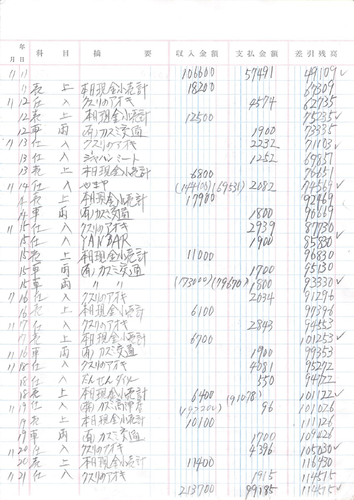 年 月 日 科目 摘要 収入金額 支払金額 差引残高
11 11 106600 57491 49109
11 売上 本日現金小売計 18200 67309
11 12 仕入 クスリのアオキ 4574 62735
12 売上 本日現金小売計 12500 75235
12 車両 (有)カズミ交通 1900 73335
11 13 仕入 クスリのアオキ 2232 71103
13 仕入 ジャパンミート 1252 69851
13 売上 本日現金小売計 6800 76651
11 14 仕入 やまや (144100) (69531) 2082 74569
14 売上 本日現金小売計 17900 92469
14 車両 (有)カズミ交通 1800 90669
11 15 仕入 クスリのアオキ 2939 87730
15 仕入 YANBAR 1900 85830
15 売上 本日現金小売計 11000 96830
15 車両 (有)カズミ交通 1700 95130
15 車両 〃 〃 (173000) (79670) 1800 93330
11 16 仕入 クスリのアオキ 2034 91296
16 売上 本日現金小売計 6100 97396
11 17 仕入 クスリのアオキ 2843 94553
17 売上 本日現金小売計 6700 101253
車両 (有)カズミ交通 1900 99353
11 18 仕入 クスリのアオキ 4081 95272
18 仕入 550 94722
18 売上 本日現金小売計 6400 (91078) 101122
11 19 仕入 (192200) 96 101026
19 売上 本日現金小売計 10100 111126
19 車両 (有)カズミ交通 1700 109426
11 20 仕入 クスリのアオキ 4396 105030
20 売上 本日現金小売計 11400 116430
11 21 仕入 クスリのアオキ 1915 114515
213700 99185 114515